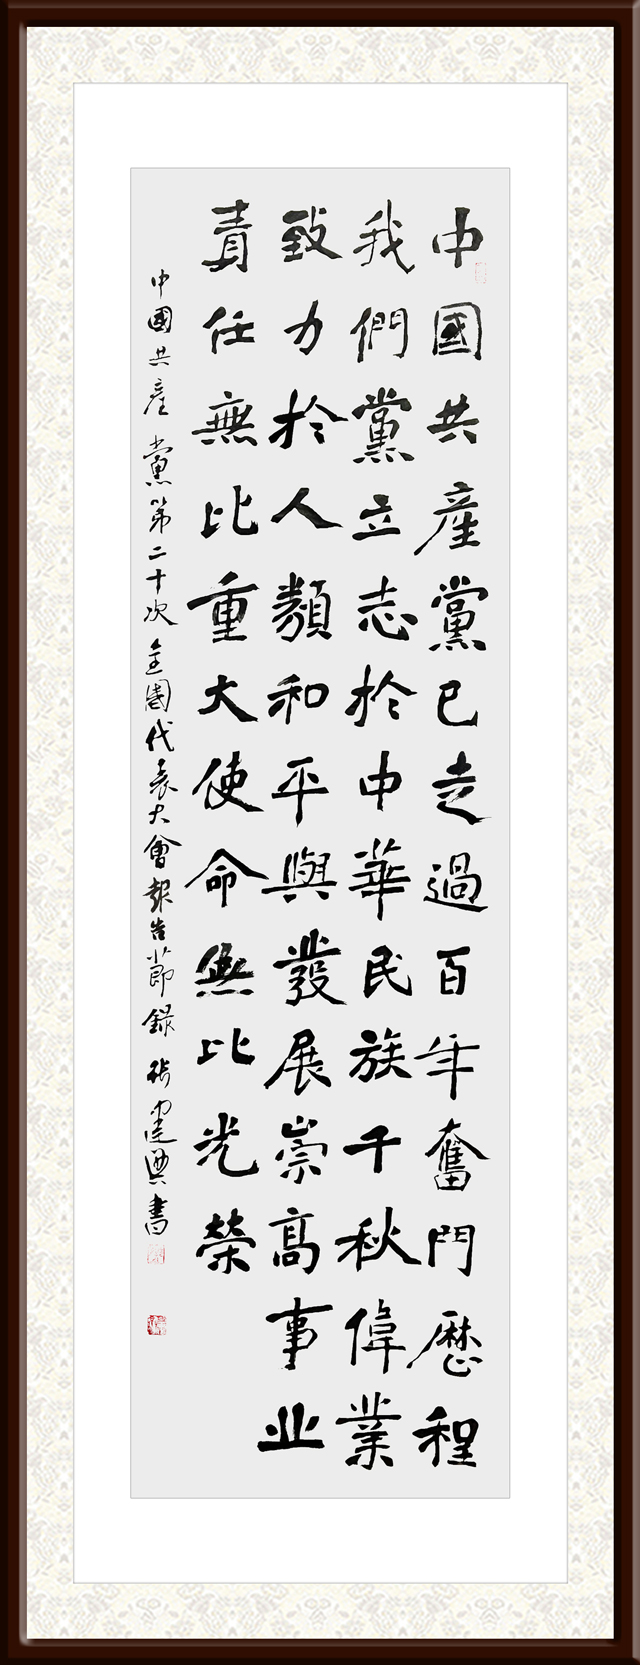 中國共産黨已走過百年奮鬥歷程
我們黨立志於中華民族千秋偉業
致力於人類和平與發展崇高事业
責任無比重大使命無比光榮
中國共産黨第二十次全國代表大會報告節録 張建興書